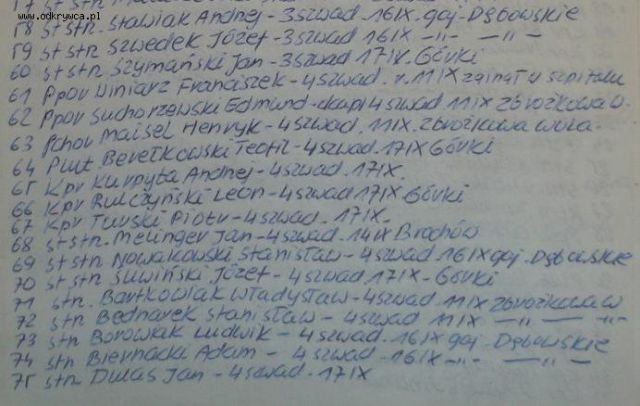 www.odkrywca.pl
58 st str. Stawiak Andrej - 3 szwad. 16 IX. gaj - Dąbowskie
59 st str Szwedek Józef - 3 szwad 16 IX -„- -„-
60 st str. Szymański Jan - 3 szwad 17 IX. Górki
61 Ppor Winiarz Franciszek - 4 szwad. r. 11 IX zginął w szpitalu
62 Ppor Suchorzewski Edmund - dcapl 4 szwad. 11 IX Zbrożkowa W.
63 Pchor Maisel Henryk - 4 szwad. 11 IX. Zbrożkowa Wola.
64 Plut Berełkowski Teofil - 4 szwad. 17 IX Górki
65 Kpr Kurpyta Andrej - 4 szwad. 17 IX.
66 Kpr Rulczyński Leon - 4 szwad 17 IX Górki
67 Kpr Turski Piotr - 4 szwad. 17 IX.
68 st str. Melinger Jan - 4 szwad. 14 IX Brochów
69 st str Nowakowski Stanisław - 4 szwad. 16 IX gaj. Dąbowskie
70 st str Śliwiński Józef - 4 szwad 17 IX - Górki
71 str. Bartkowiak Władysław - 4 szwad. 11 IX Zbrożkowa W
72 str Bednarek Stanisław - 4 szwad 11 IX -„- -„-
73 str Borowiak Ludwik - 4 szwad. 16 IX gaj. Dąbowskie
74 str Biernacki Adam - 4 szwad. 16 IX -„- -„-
75 str Dulas Jan - 4 szwad. 17 IX